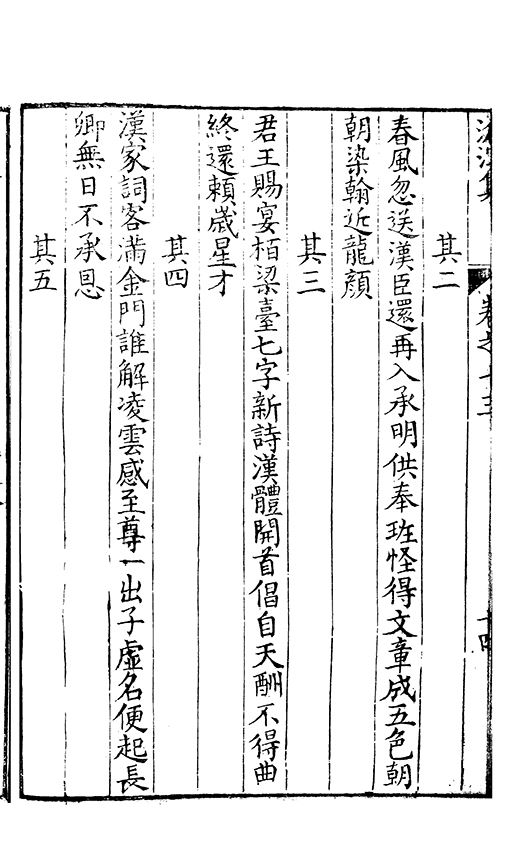 其二
春風忽送漢臣還再入承明供奉班怪得文章成五色朝
朝染翰近龍顔
其三
君王賜宴栢梁臺七字新詩漢體開首倡自天酬不得曲
終還頼歳星才
其四
漢家詞客滿金門誰解凌雲感至尊一出子虛名便起長
卿無日不承恩
其五